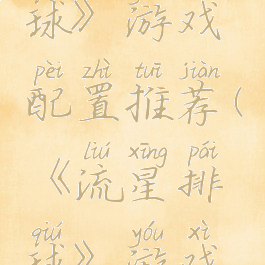 球》游戏
pèi zhì tuī jiàn
配置推荐(
liú xīng pái
《流星排
qiú yóu xì
球》游戏